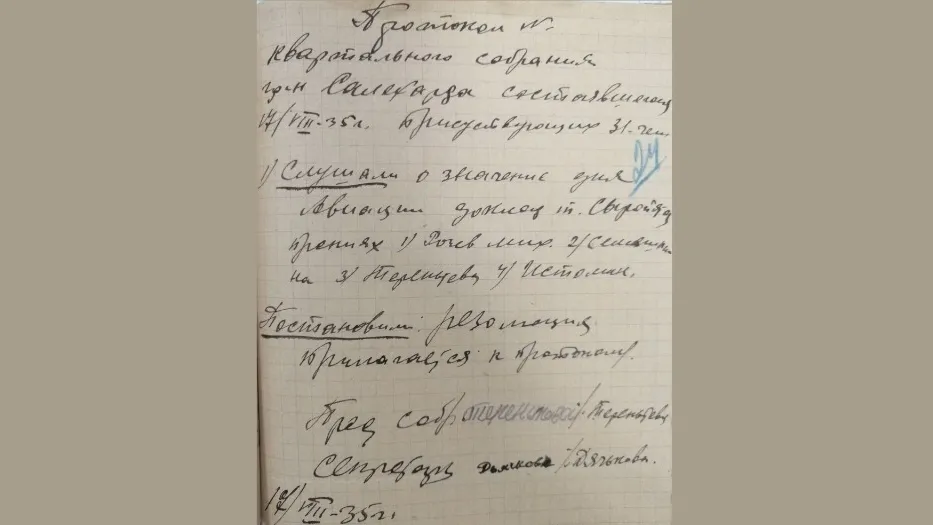 Протокол №
квартального собрания
гр-н Салехарда состоявшегося
17/VIII-35г. Присуствующих 31-чел
24
1) Слушали о значение дня
Авиации доклад т.
прениях 1) Рочев Мих. 2)
на 3) Терентьева 4) Истомин.
Постановили: резолюция
прилагается к протоколу.
Пред собр /Терентьева
Секретарь Дьячкова /Дячькова.
17/VIII-35г.